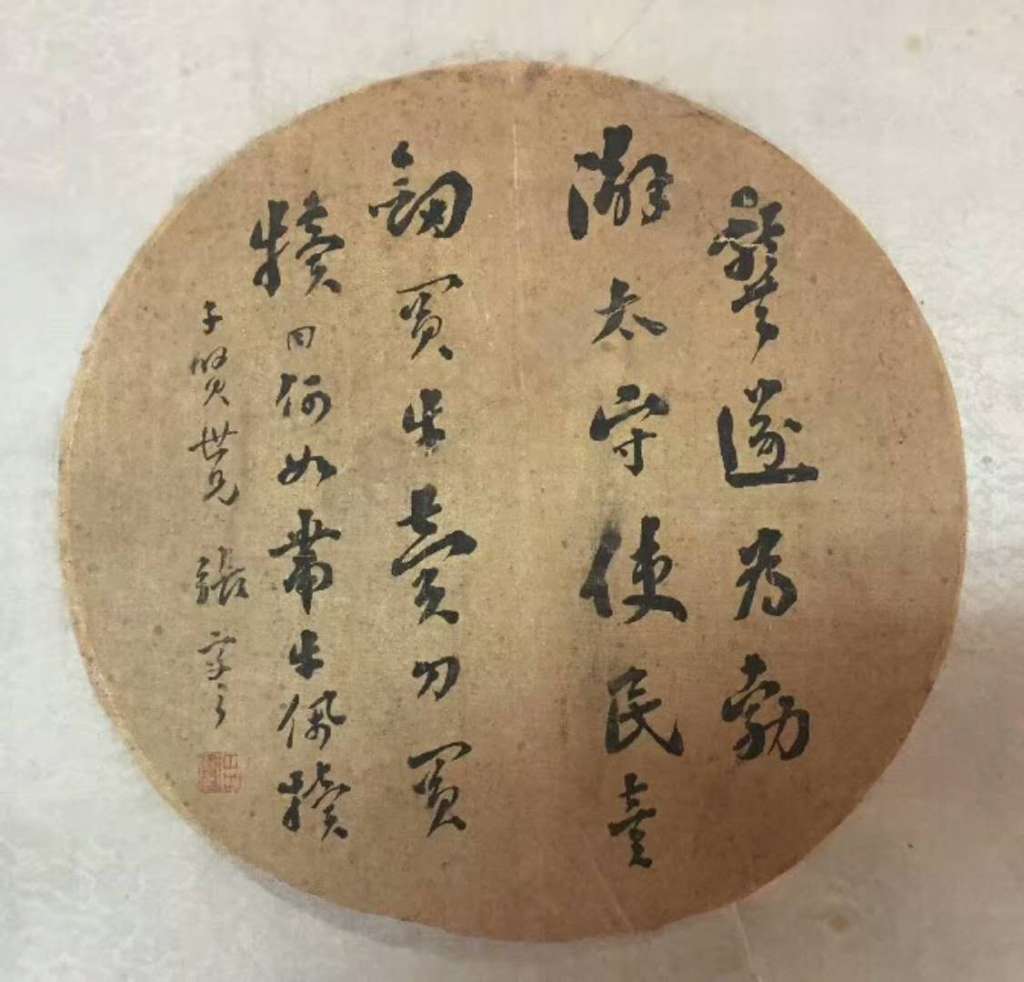 龔遂為勃
澥太守使民賣
劒買牛賣刀買
犢曰何如帶牛佩犢
子賢世兄 張謇